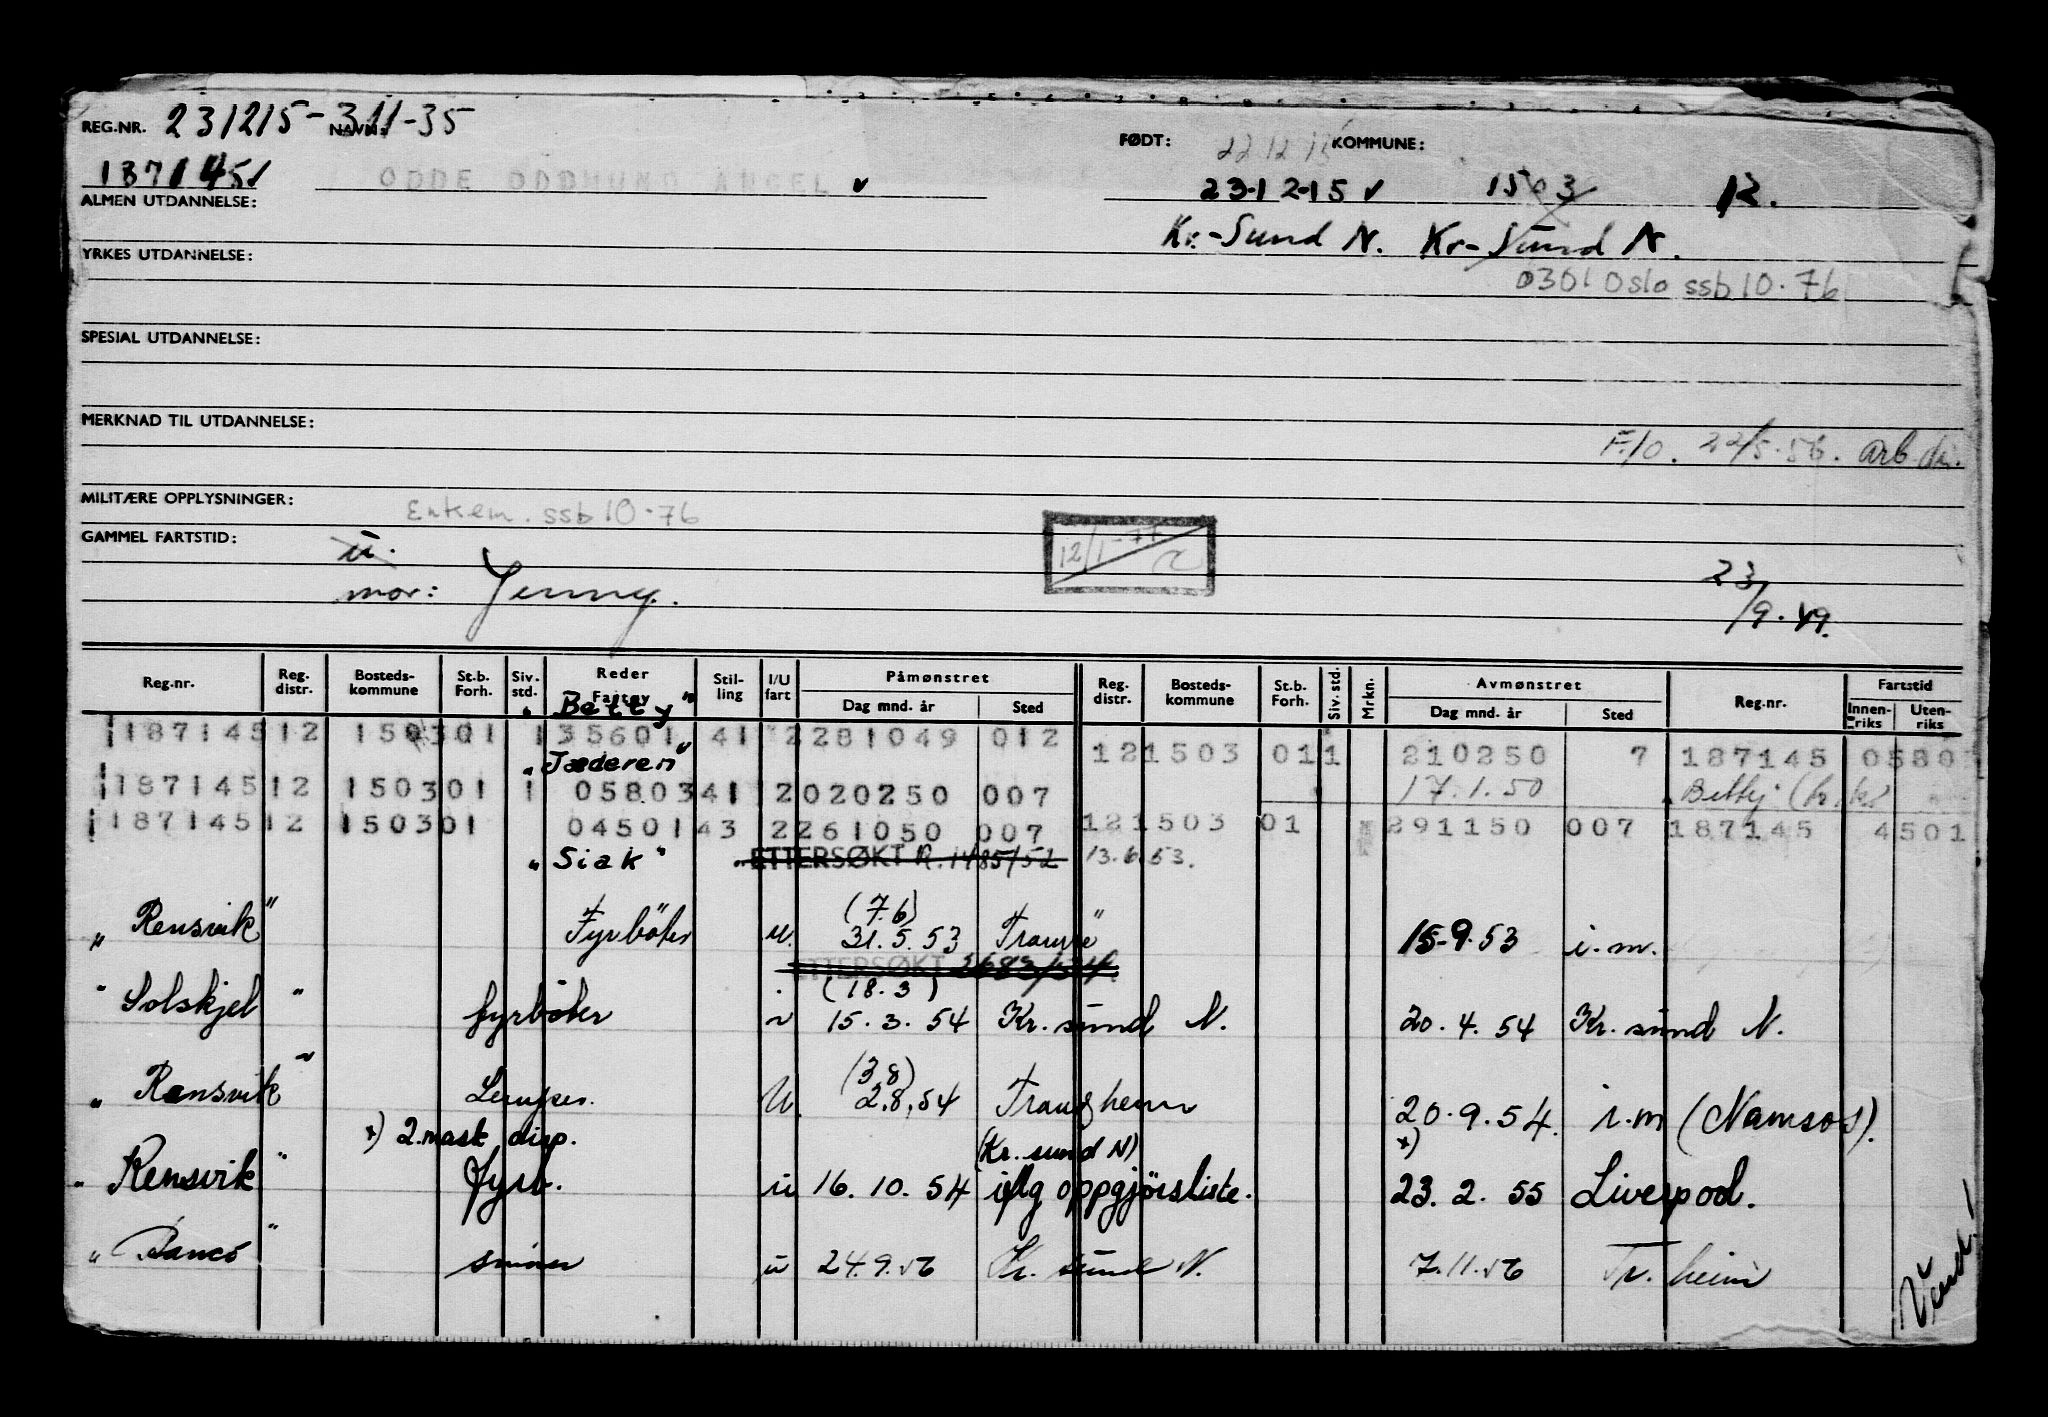 REG.NR. 231215-311-35 NAVN: FØDT: 22 12 15 KOMMUNE:
187145 ODDE ODDMUND AKSEL 23.12.15 1503 12.
ALMEN UTDANNELSE: Kr.-Sund N. Kr-Sund N.
YRKES UTDANNELSE: 0301 Oslo ssb 10.76
SPESIAL UTDANNELSE:
MERKNAD TIL UTDANNELSE: F./O. 22/5.56. arb.dir.
MILITÆRE OPPLYSNINGER: Enkem. ssb 10.76
GAMMEL FARTSTID: u. 12/1-77
mor: Jenny. 23/9.49.
Reg.nr. Reg. distr. Bosteds- kommune St.b. Forh. Siv. std. Reder Fartøy Stil- ling I/U fart Påmønstret Dag mnd. år Sted Reg. distr. Bosteds- kommune St.b. Forh. Siv. std. Mrkn. Avmønstret Dag mnd. år Sted Reg.nr. Fartstid Innen- riks Uten- riks
"Betty"
187145 12 150301 1 35601 41 2 281049 012 12 1503 01 1 210250 7 187145 0580
"Jæderen"
187145 12 150301 1 05803 41 2 020250 007 17.1.50
187145 12 150301 04501 43 2 261050 007 12 1503 01 291150 007 187145 4501
"Siak" ETTERSØKT R.1485/52 13.6.53.
(7.6)
"Rensvik" Fyrböter u. 31.5.53 15-9.53 i.m.
ETTERSØKT
(18.3)
"Solskjel" fyrböter u 15.3.54 Kr. sund N. 20.4.54 Kr. sund N.
(3.8)
"Rensvik" Lemper. U 2.8.54 20.9.54. i.m (Namsos).
x) 2.mask disp. (Kr. sund N) x)
"Rensvik" fyrb. u 16.10.54 iflg oppgjörsliste. 23.2.55 Liverpool.
u 24.9.56 Kr. sund N. 7.11.56 Tr. heim